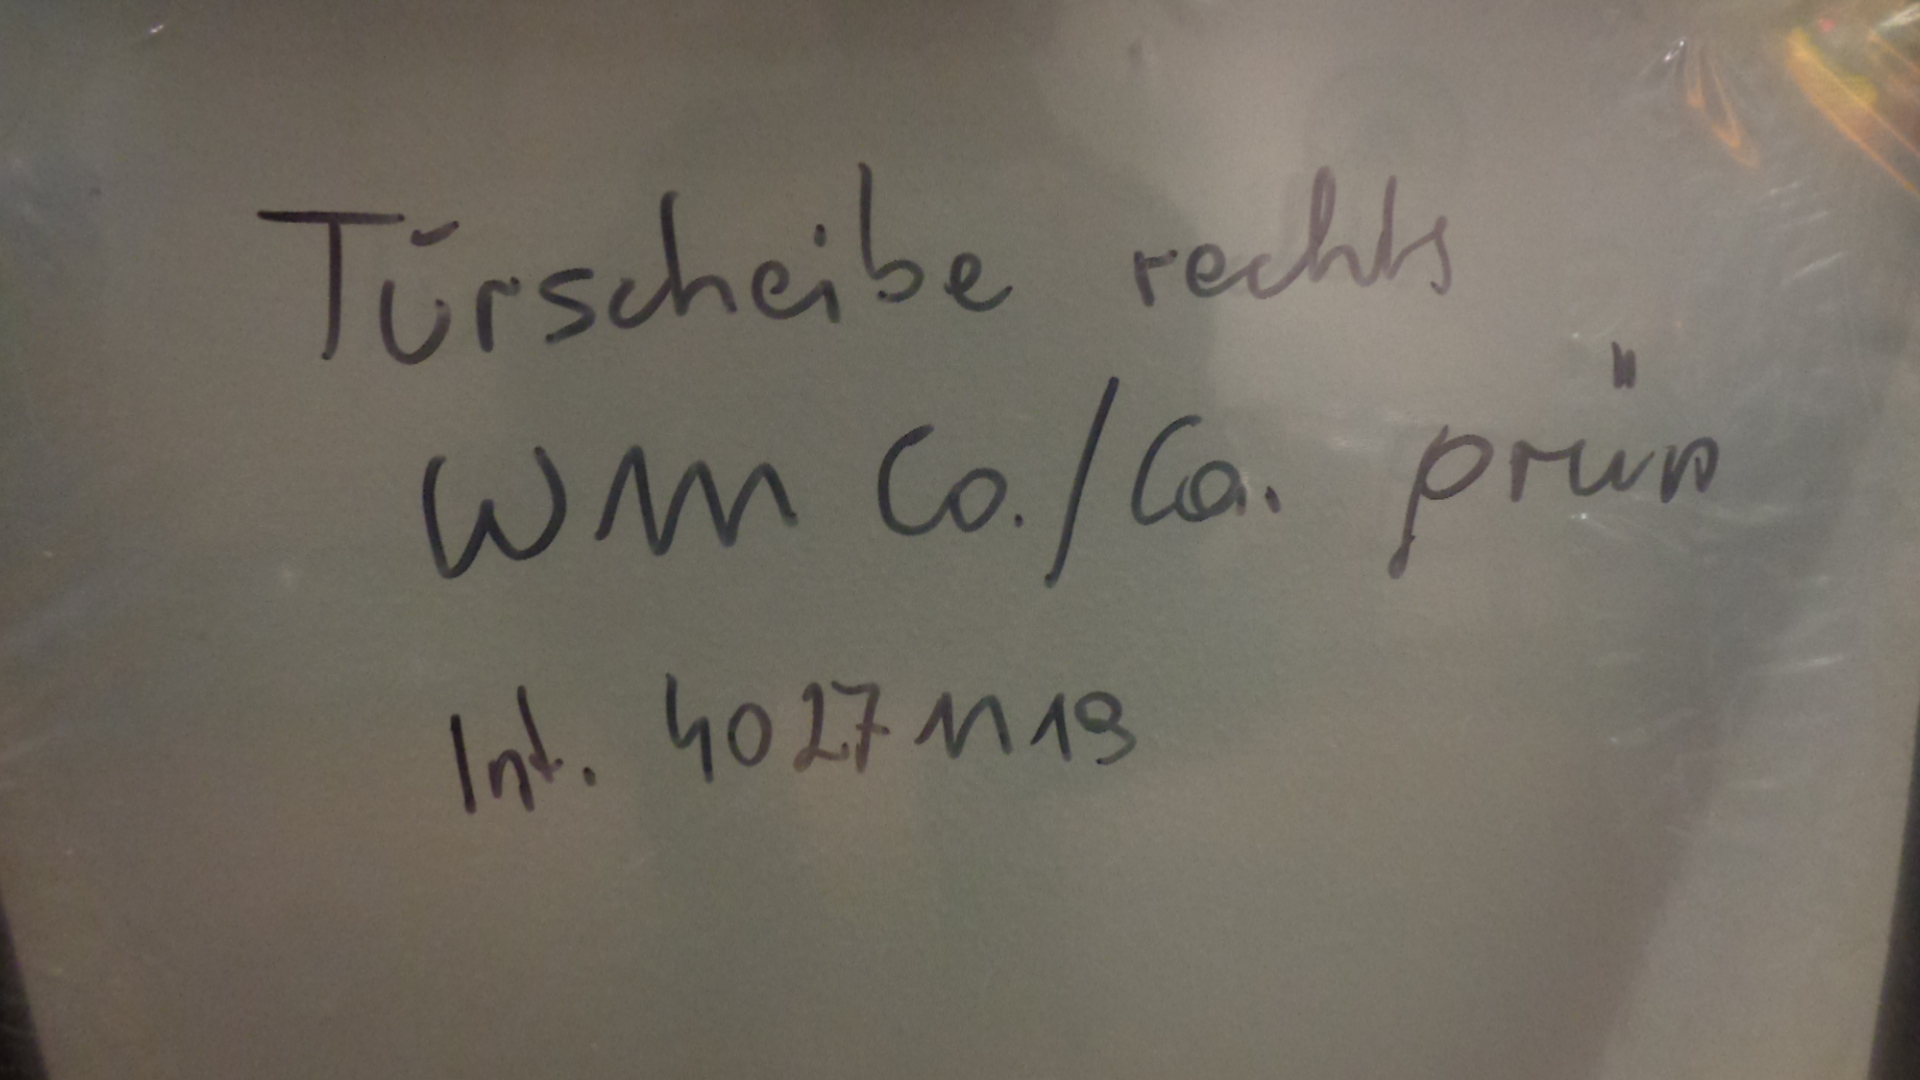 Türscheibe rechts
WM Co./Ca. grün
Int. 40271119